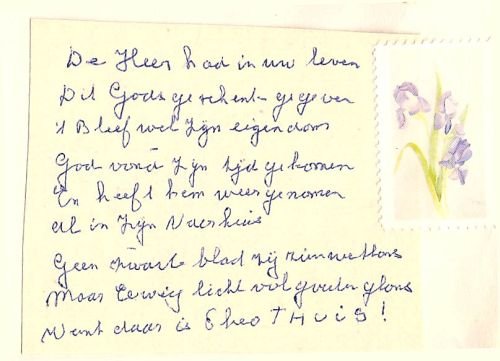 De Heer had in uw leven
Dit Gods geschenk gegeven
't Bleef wel Zijn eigendom
God vond Zijn tijd gekomen
En heeft hem weer genomen
al in Zijn Vaerhuis
Geen zwarte blad zij
Maar Eeuwig licht vol gouden glans
Want daar is Theo THUIS!